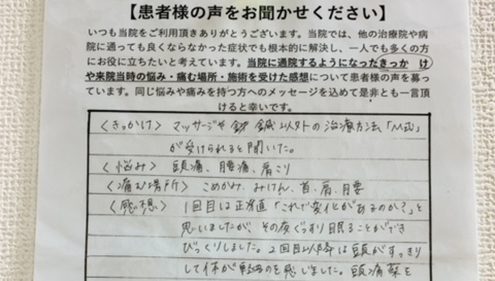 【患者様の声をお聞かせください】
いつも当院をご利用頂きありがとうございます。当院では、他の治療院や病
院に通っても良くならなかった症状でも根本的に解決し、一人でも多くの方
にお役に立ちたいと考えています。当院に通院するようになったきっか け
や来院当時の悩み・痛む場所・施術を受けた感想について患者様の声を募っ
ています。同じ悩みや痛みを持つ方へのメッセージを込めて是非とも一言頂
けると幸いです。
〈きっかけ〉 マッサージや 鍼以外の治療方法「
が受けられると聞いた。
〈悩み〉 頭痛、腰痛、肩こり
〈痛む場所〉 こめかみ、みけん、首、肩、腰
〈感想〉 1回目は正直「これで変化があるのか?」と
思いましたが、その夜ぐっすり眠ることができ
びっくりしました。2回目以降は頭がすっきり
して体が 軽るのを感じました。頭痛薬を